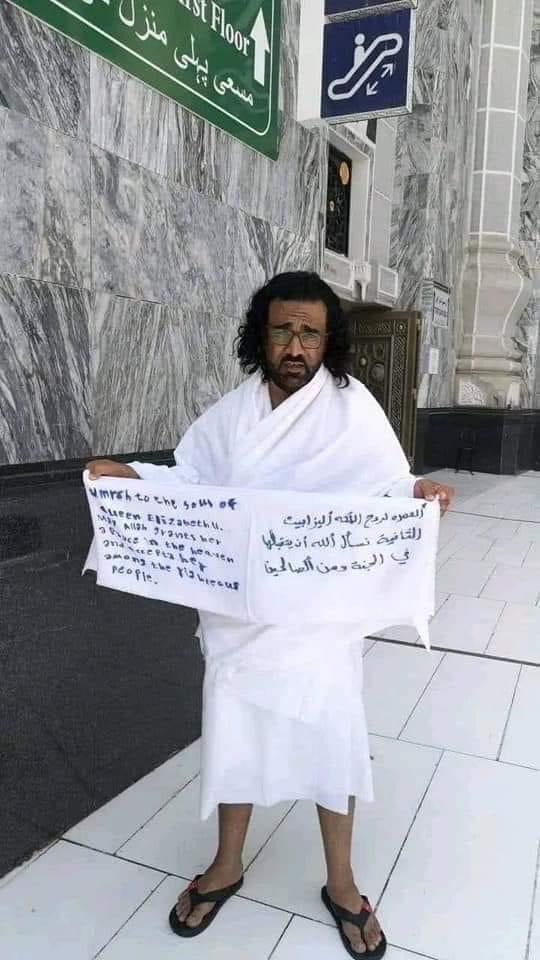 rst Floor
مسعی پہلی منزل
Umrah to the soul of
Queen Elizabeth II.
May Allah grants her
a Place in the heaven
and accepts her
among the righteous
People.
العمره لروح الملكه اليزابيث
الثانية نسأل الله أن يتقبلها
في الجنة ومن الصالحين